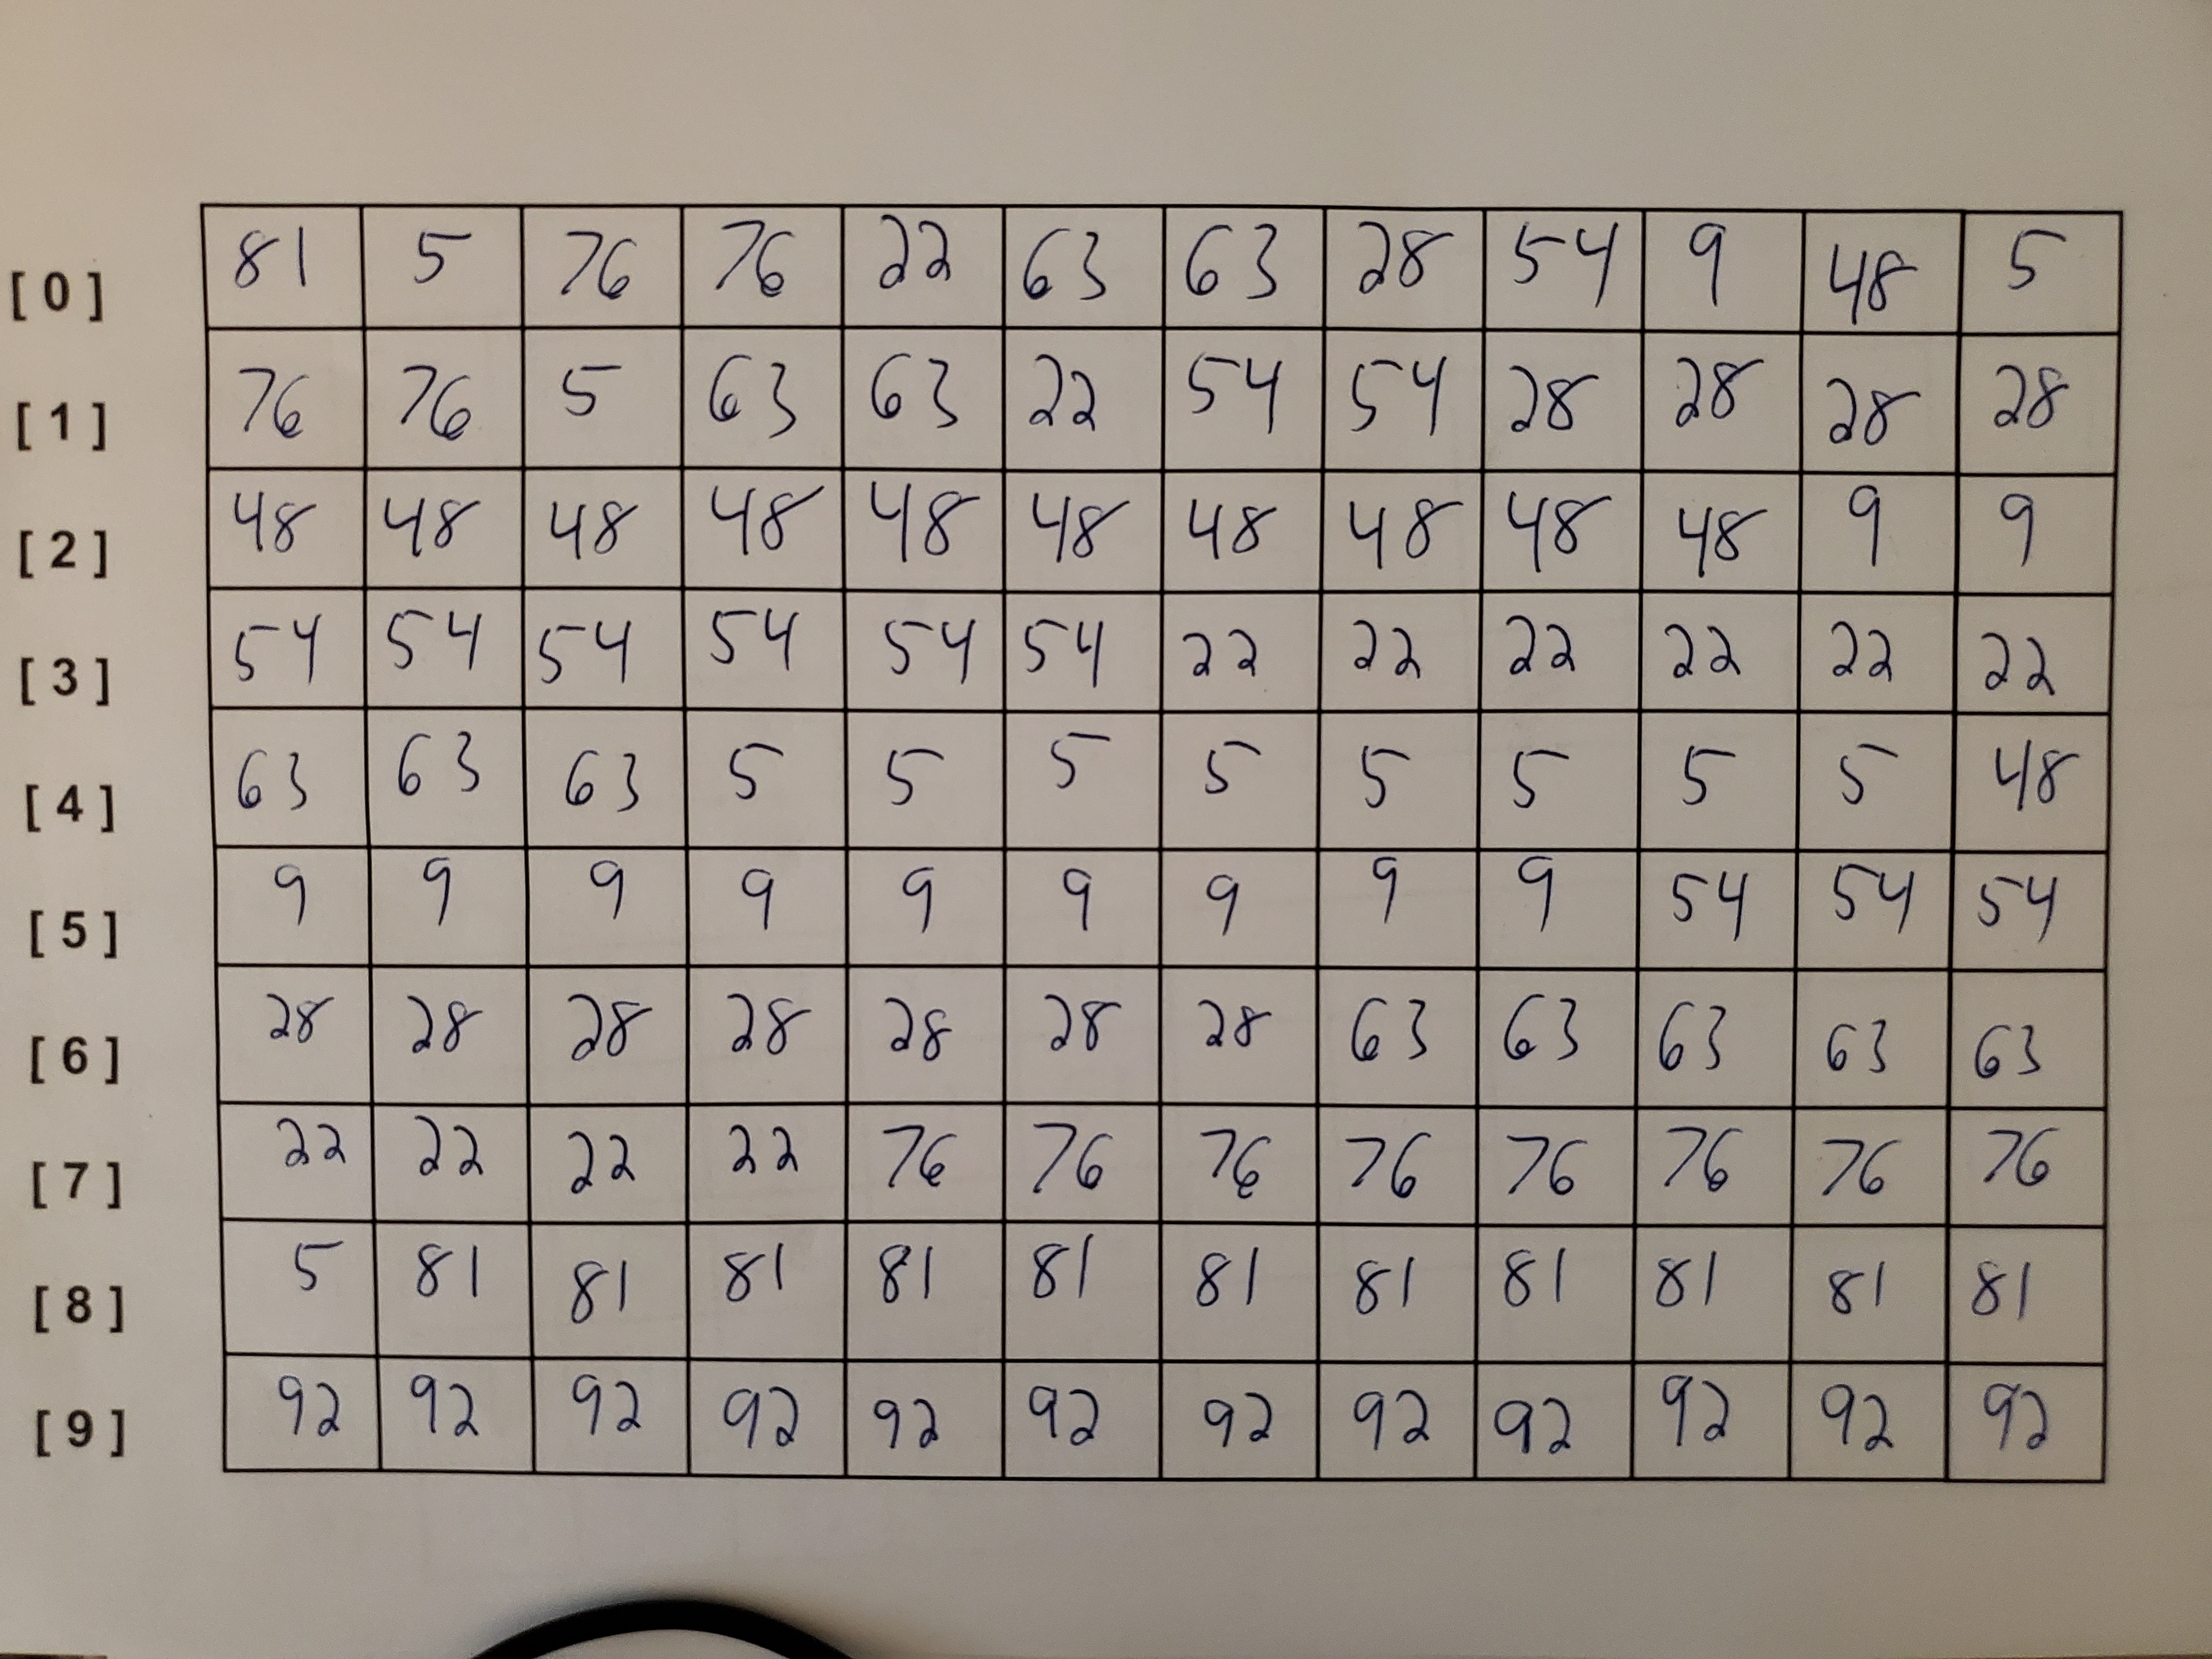 [0] 81 5 76 76 22 63 63 28 54 9 48 5
[1] 76 76 5 63 63 22 54 54 28 28 28 28
[2] 48 48 48 48 48 48 48 48 48 48 9 9
[3] 54 54 54 54 54 54 22 22 22 22 22 22
[4] 63 63 63 5 5 5 5 5 5 5 5 48
[5] 9 9 9 9 9 9 9 9 9 54 54 54
[6] 28 28 28 28 28 28 28 63 63 63 63 63
[7] 22 22 22 22 76 76 76 76 76 76 76 76
[8] 5 81 81 81 81 81 81 81 81 81 81 81
[9] 92 92 92 92 92 92 92 92 92 92 92 92